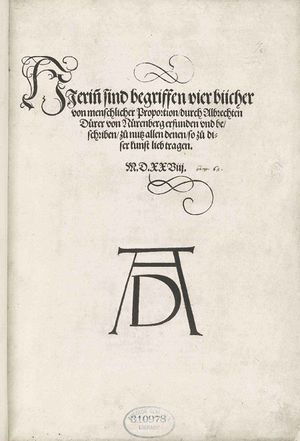 Hierin̄ sind begriffen vier bücher
von menschlicher Proportion / durch Albrechten
Dürer von Nürenberg erfunden vnd be/
schriben / zů nutz allen denen / so zů di-
ser kunst lieb tragen.
M.D.XXViij.
AD
310978